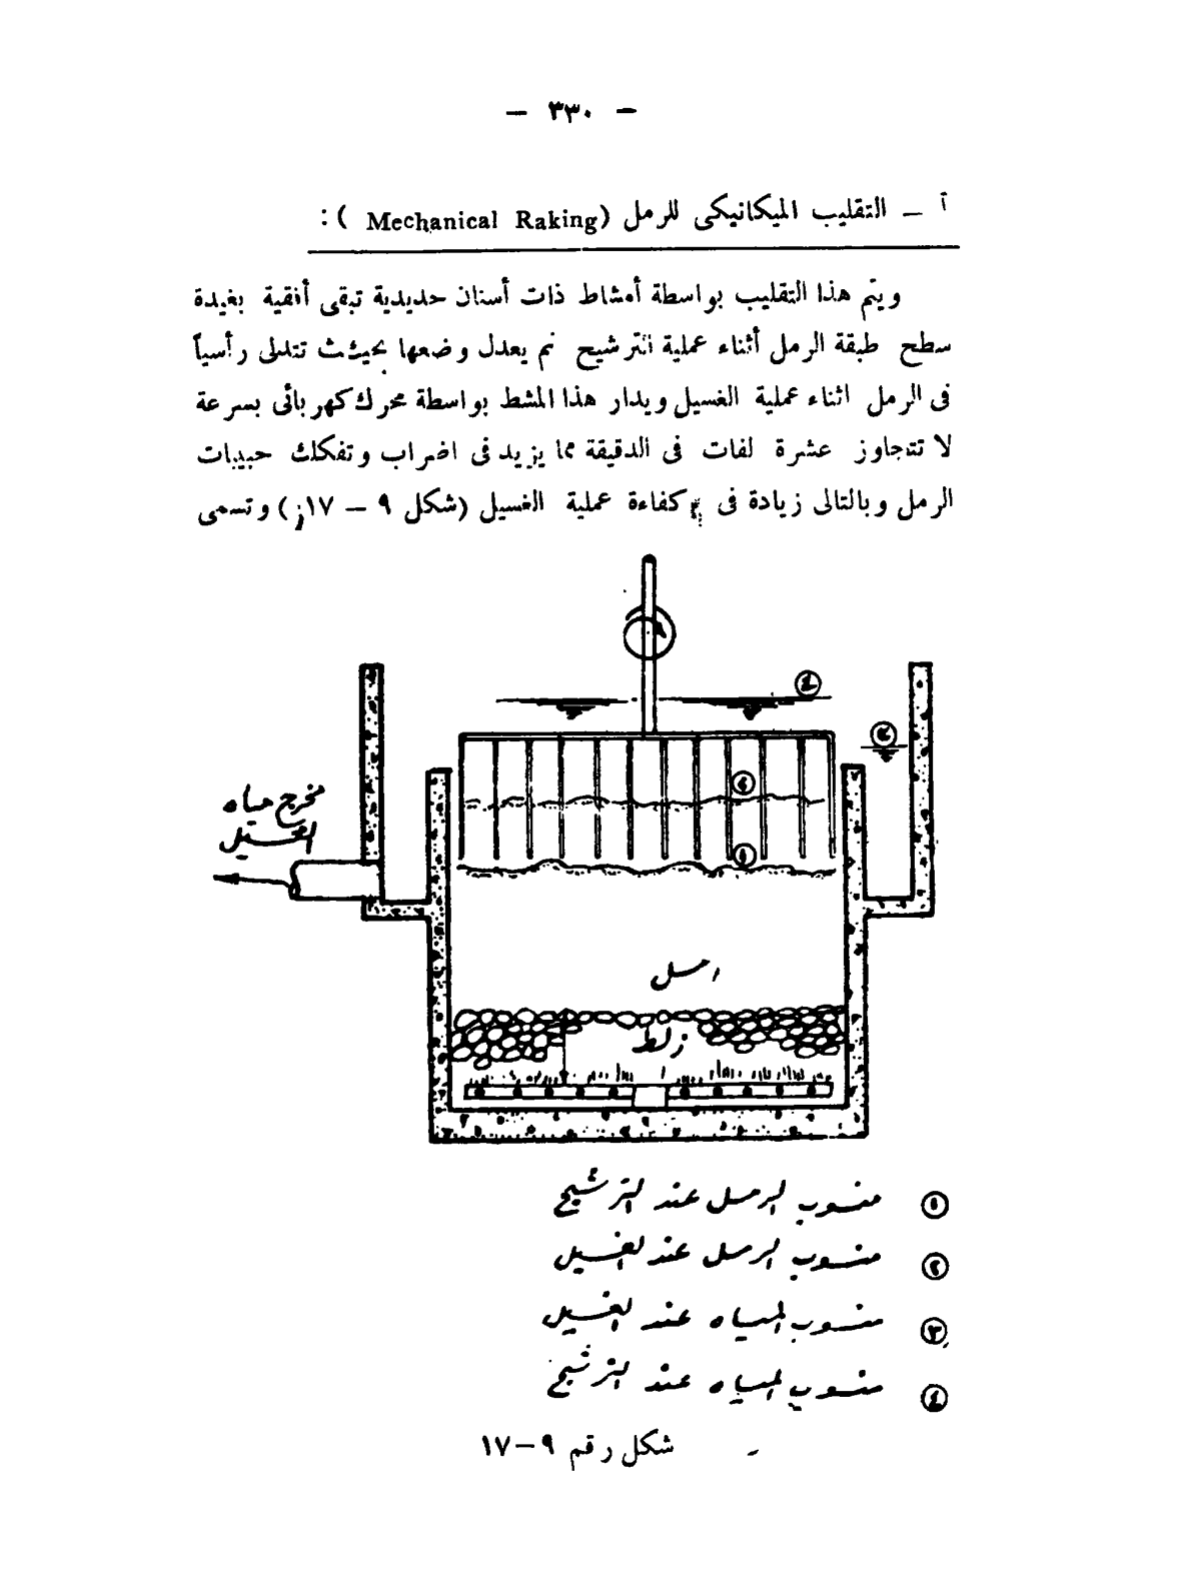 — ٣٣٠ —
أ — التقليب الميكانيكى للرمل (Mechanical Raking) :
ويتم هذا التقليب بواسطة أمشاط ذات أسنان حديدية تبقى أفقية بعيدة
سطح طبقة الرمل أثناء عملية الترشيح ثم يعدل وضعها بحيث تتدلى رأسياً
فى الرمل اثناء عملية الغسيل ويدار هذا المشط بواسطة محرك كهربائى بسرعة
لا تتجاوز عشرة لفات فى الدقيقة مما يزيد فى اضراب وتفكك حبيبات
الرمل وبالتالى زيادة فى كفاءة عملية الغسيل (شكل ٩ — ١٧) وتسمى
٤
٣
٢
١
مخرج مياه
الغسيل
رمل
زلط
١ منسوب الرمل عند الترشيح
٢ منسوب الرمل عند الغسيل
٣ منسوب المياه عند الغسيل
٤ منسوب المياه عند الترشيح
شكل رقم ٩—١٧